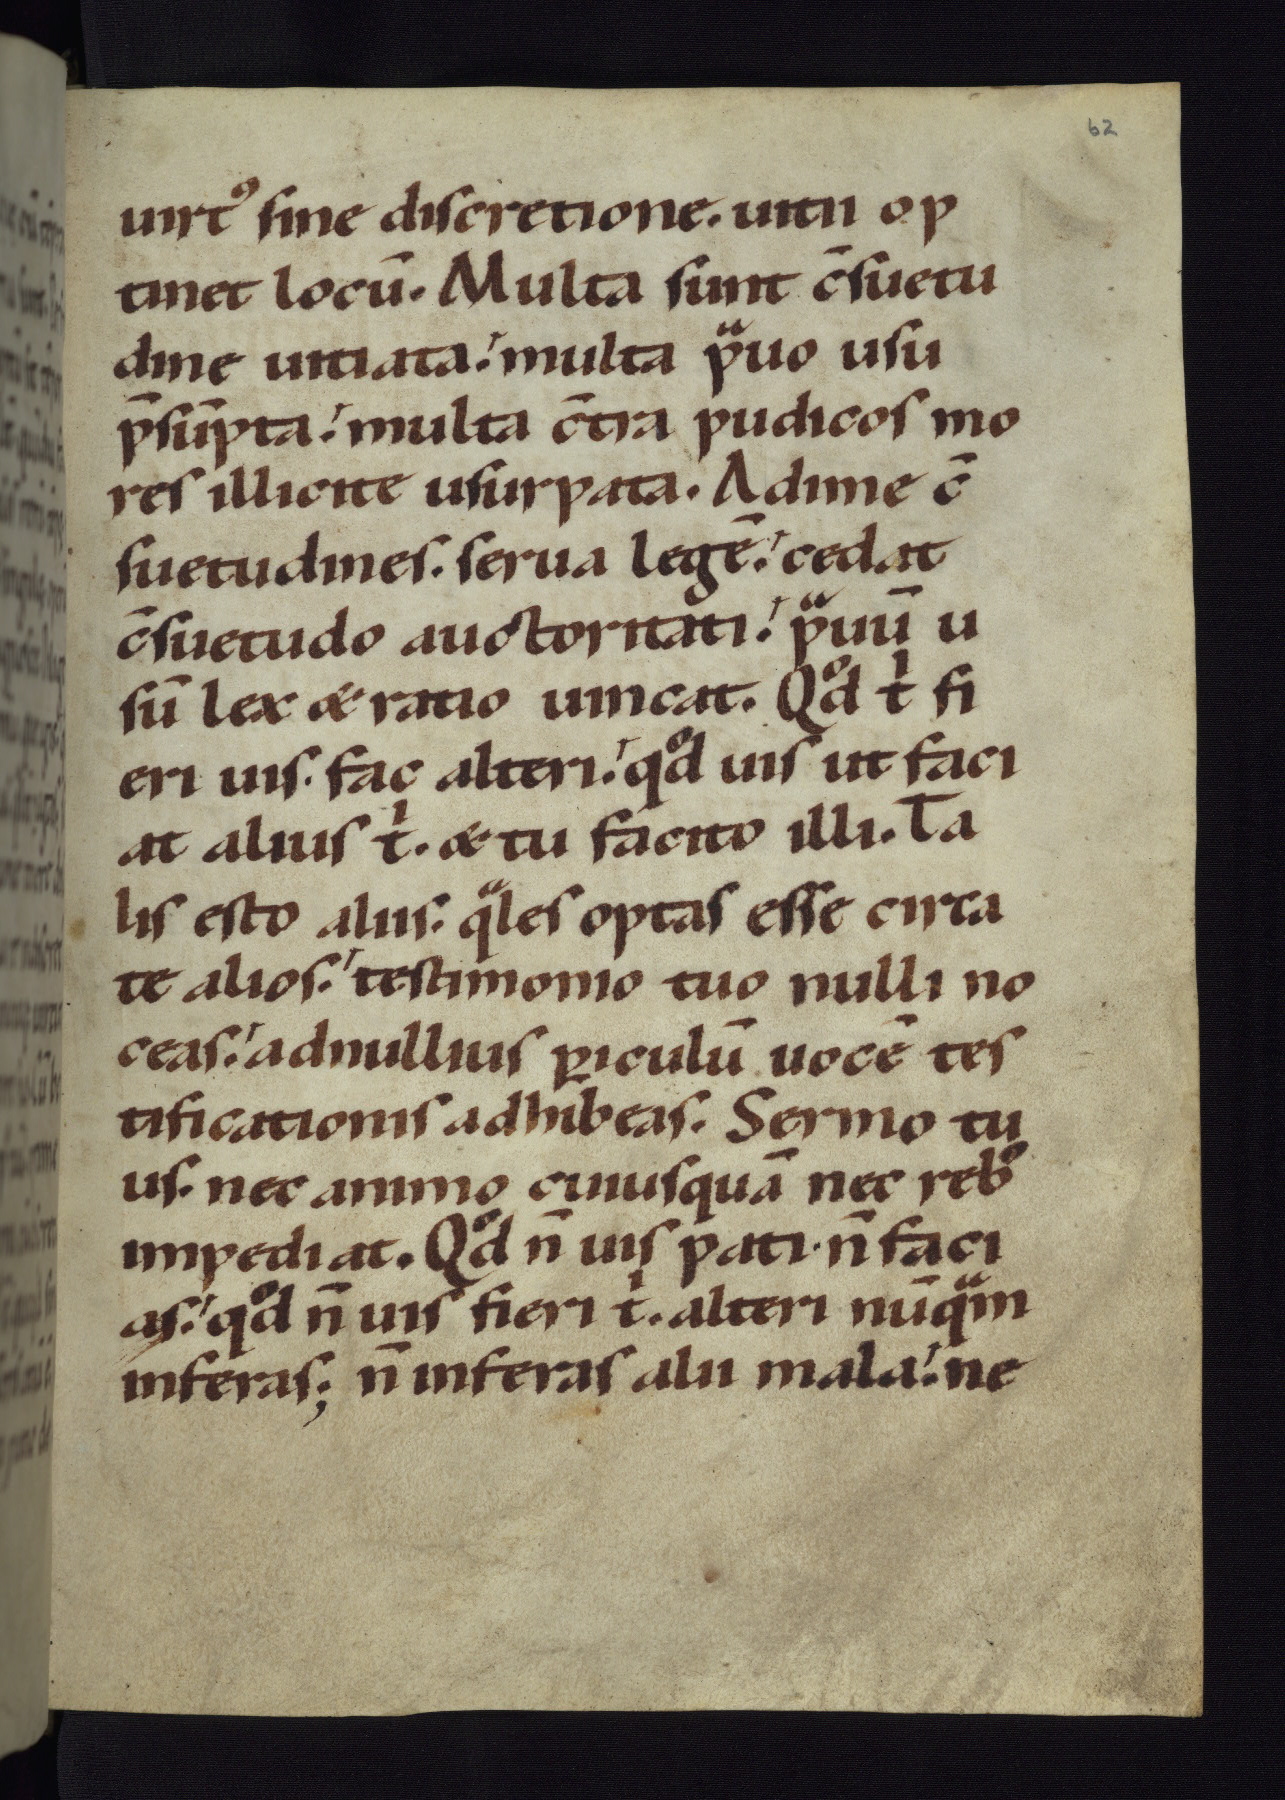 62
uirtꝰ sine discretione. uitii op
tinet locū. Multa sunt c̄suetu
dine uitiata: multa pͣuo usu
p̄sūpta: multa c̄tra pudicos mo
res illicite usurpata. Adime c̄
suetudines. serua legē: cedat
c̄suetudo auctoritati: pͣuū u
sū lex & ratio uincat. Qͦd tͥ fi
eri uis. fac alteri: qͦd uis ut faci
at alius tͥ. & tu facito illi. Ta
lis esto aliis. qͣles optas esse circa
te alios: testimonio tuo nulli no
ceas: ad nullius ꝑiculū uocē tes
tificationis adhibeas. Sermo tu
us. nec animo cuiusquā nec rebꝰ
impediat. Qͦd n̄ uis pati. n̄ faci
as: qͦd n̄ uis fieri tͥ. alteri nūqͣm
inferas; n̄ inferas alii mala: ne